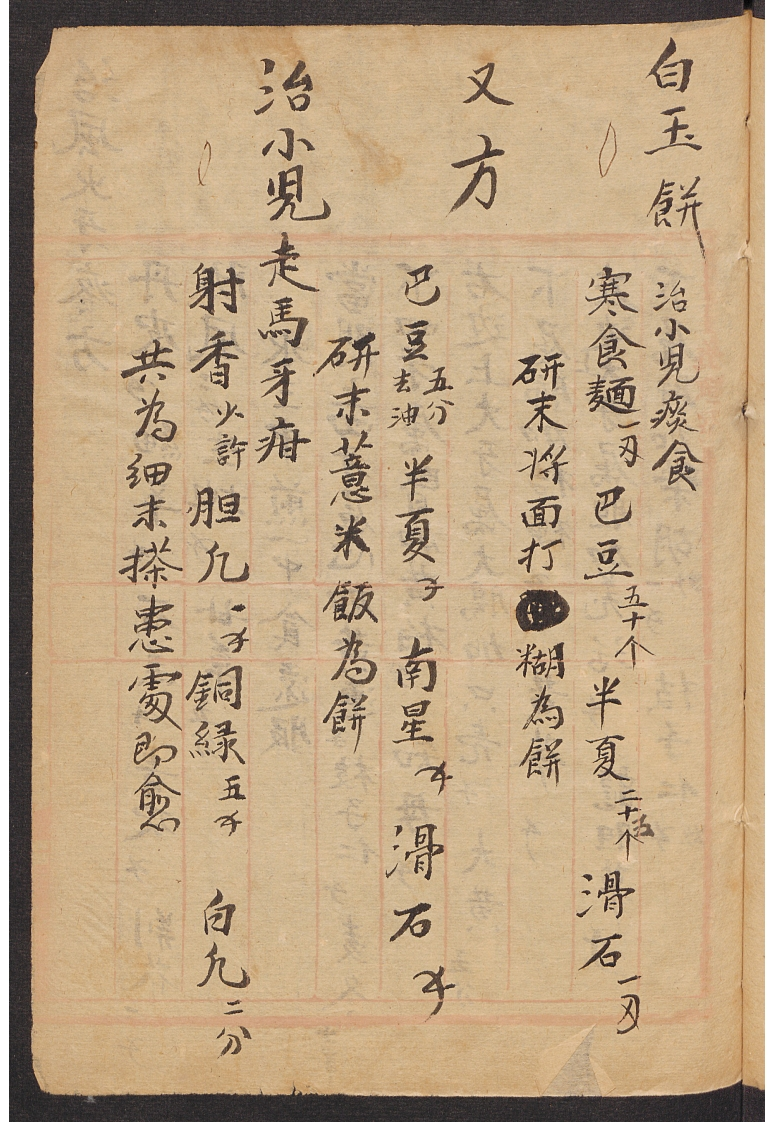 白玉餅
治小児痰食
寒食麺一刄 巴豆五十个 半夏二十五个 滑石一刄
研末将面打糊為餅
又方
巴豆五分去油 半夏 南星 滑石
研末薏米飯為餅
治小児走馬牙疳
射香火許 胆凢一 銅緑五 白凢二分
共為细末搽患處即愈